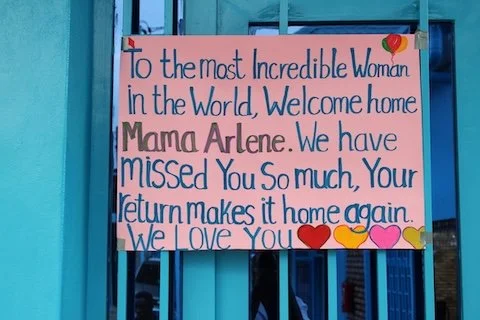 To the most Incredible Woman
in the World, Welcome home
Mama Arlene. We have
missed You So much, Your
return makes it home again.
We Love You